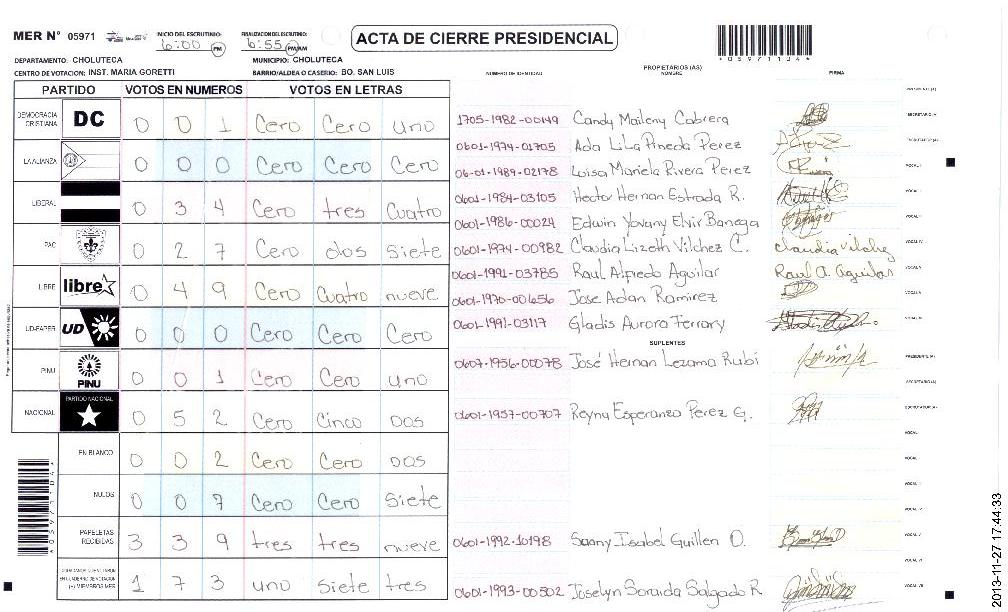 MER N° 05971
INICIO DEL ESCRUTINIO: 6:00 PM
FINALIZACION DEL ESCRUTINIO: 6:55 PM/AM
ACTA DE CIERRE PRESIDENCIAL
*05971104*
DEPARTAMENTO: CHOLUTECA MUNICIPIO: CHOLUTECA
CENTRO DE VOTACION: INST. MARIA GORETTI BARRIO/ALDEA O CASERIO: BO. SAN LUIS
NUMERO DE IDENTIDAD PROPIETARIOS (AS) NOMBRE FIRMA
PARTIDO VOTOS EN NUMEROS VOTOS EN LETRAS
DEMOCRACIA CRISTIANA DC 0 0 1 Cero Cero uno
LA ALIANZA 0 0 0 Cero Cero Cero
LIBERAL 0 3 4 Cero tres Cuatro
PAC 0 2 7 Cero dos Siete
LIBRE libre 0 4 9 Cero Cuatro nueve
UD-FAPER UD 0 0 0 Cero Cero Cero
PINU PINU 0 0 1 Cero Cero uno
NACIONAL PARTIDO NACIONAL 0 5 2 Cero Cinco Dos
EN BLANCO 0 0 2 Cero Cero Dos
NULOS 0 0 7 Cero Cero Siete
PAPELETAS RECIBIDAS 3 3 9 tres tres nueve
1 7 3 uno siete tres
1705-1982-00149 Candy Maileny Cabrera
0601-1974-01705 Ada Lila Pineda Perez
06-01-1989-02178 Luisa Mariela Rivera Perez
0601-1984-03105 Hector Hernan Estrada R.
0601-1986-00024 Edwin Yovany Elvir Banega
0601-1974-00982 Claudia Lizeth Vilchez C. Claudia Vilchez
0601-1991-03785 Raul Alfredo Aguilar Raul A. Aguilar
0601-1970-00656 Jose Adan Ramirez
0601-1991-03117 Gladis Aurora Ferrary
SUPLENTES
0607-1956-00078 José Hernan Lezama Rubi
0601-1957-00707 Reyna Esperanza Perez G.
0601-1992-10198 Saany Isabel Guillen O.
0601-1993-00502 Joselyn Soraida Salgado R
2013-11-27 17:44:33